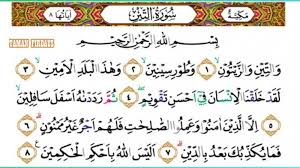 مكية سورة التين آياتها ٨
TAMAN FIRDAUS
بِسْمِ اللَّهِ الرَّحْمَٰنِ الرَّحِيمِ
وَالتِّينِ وَالزَّيْتُونِ ١ وَطُورِ سِينِينَ ٢ وَهَٰذَا الْبَلَدِ الْأَمِينِ ٣
لَقَدْ خَلَقْنَا الْإِنسَانَ فِي أَحْسَنِ تَقْوِيمٍ ٤ ثُمَّ رَدَدْنَاهُ أَسْفَلَ سَافِلِينَ ٥
إِلَّا الَّذِينَ آمَنُوا وَعَمِلُوا الصَّالِحَاتِ فَلَهُمْ أَجْرٌ غَيْرُ مَمْنُونٍ ٦
فَمَا يُكَذِّبُكَ بَعْدُ بِالدِّينِ ٧ أَلَيْسَ اللَّهُ بِأَحْكَمِ الْحَاكِمِينَ ٨